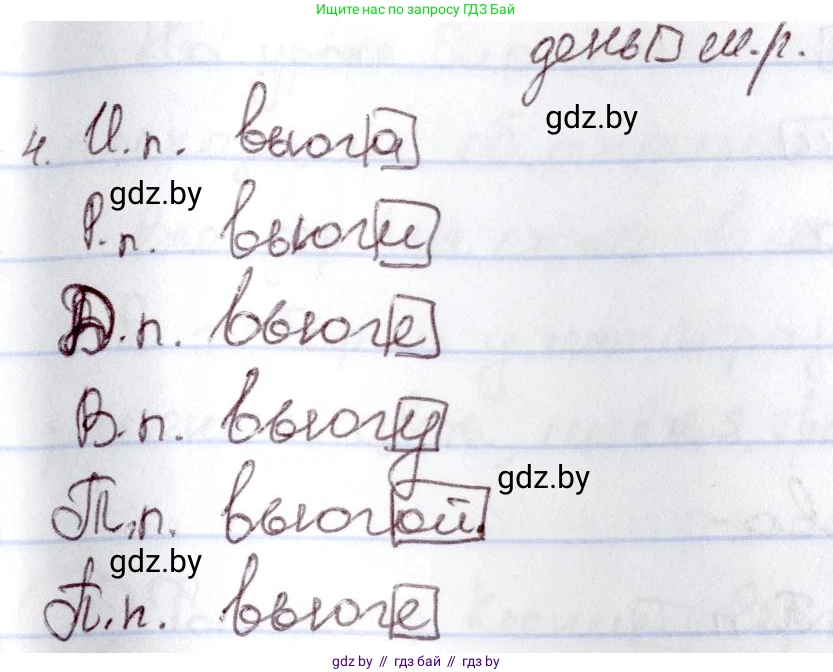 Ищите нас по запросу ГДЗ Бай
день м.р.
gdz.by
4. И.п. вьюга
gdz.by
Р.п. вьюги
Д.п. вьюге
В.п. вьюгу
gdz.by
Т.п. вьюгой
gdz.by
П.п. вьюге
gdz.by // гдз бай // гдз by